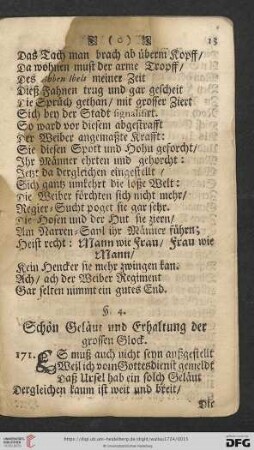 ( o ) 15
Das Tach man brach ab überm Kopff/
Da wohnen muſt der arme Tropff/
Des halben theils meiner Zeit
Dieß Fahnen trug und gar geſcheit
Die Sprüch gethan/ mit groſſer Ziert
Sich bey der Stadt ſignaliſirt.
So ward vor dieſem abgeſtrafft
Der Weiber angemaßte Krafft:
Sie dieſen Spott und Hohn geforcht/
Ihr Männer ehrten und gehorcht:
Jetzt da dergleichen eingeſtellt/
Sich gantz umkehrt die loſe Welt:
Die Weiber förchten ſich nicht mehr/
Regier-Sucht poget ſie gar ſehr.
Die Hoſen und der Hut ſie ziern/
Am Narren-Sayl ihr Männer führn;
Heiſt recht: Mann wie Frau/ Frau wie
Mann/
Kein Hencker ſie mehr zwingen kan.
Ach/ ach der Weiber Regiment
Gar ſelten nimmt ein gutes End.
§. 4.
Schön Geläut und Erhaltung der
groſſen Glock.
171. ES muß auch nicht ſeyn außgeſtellt
Weil ich vom Gottesdienſt gemeldt
Daß Urſel hab ein ſolch Geläut
Dergleichen kaum iſt weit und breit/
Die
http://digi.ub.uni-heidelberg.de/diglit/
© Universitätsbibliothek Heidelberg
Gefördert durch
DFG